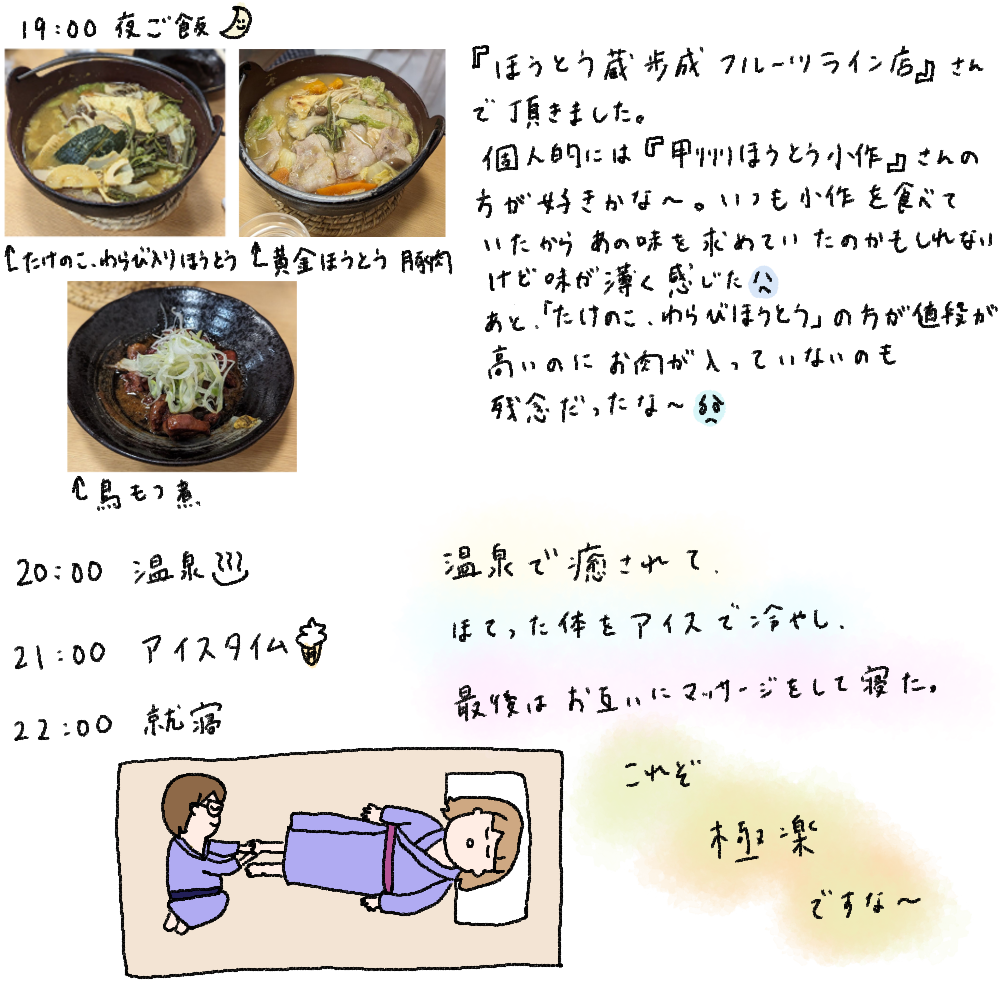 19:00 夜ご飯
『ほうとう蔵 歩成 フルーツライン店』さん
で頂きました。
個人的には『甲州ほうとう小作』さんの
方が好きかな〜。いつも小作を食べて
いたからあの味を求めていたのかもしれない
けど味が薄く感じた
あと、「たけのこ、わらびほうとう」の方が値段が
高いのにお肉が入っていないのも
残念だったな〜
↑たけのこ、わらび入りほうとう
↑黄金ほうとう 豚肉
↑鳥もつ煮
20:00 温泉
21:00 アイスタイム
22:00 就寝
温泉で癒されて、
ほてった体をアイスで冷やし、
最後はお互いにマッサージをして寝た。
これぞ
極楽
ですな〜